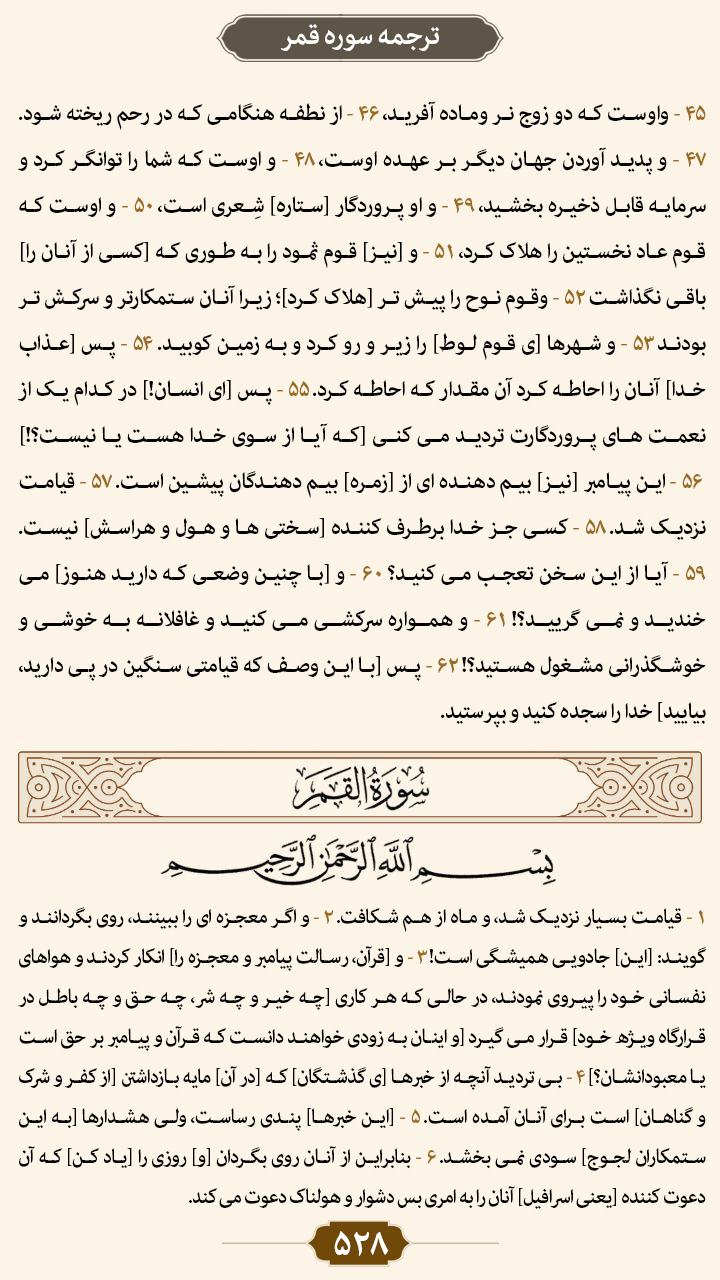 ترجمه سوره قمر
۴۵ - واوست که دو زوج نر وماده آفرید، ۴۶ - از نطفه هنگامی که در رحم ریخته شود.
۴۷ - و پدید آوردن جهان دیگر بر عهده اوست، ۴۸ - و اوست که شما را توانگر کرد و
سرمایه قابل ذخیره بخشید، ۴۹ - و او پروردگار [ستاره] شِعری است، ۵۰ - و اوست که
قوم عاد نخستین را هلاک کرد، ۵۱ - و [نیز] قوم ثمود را به طوری که [کسی از آنان را]
باقی نگذاشت ۵۲ - وقوم نوح را پیش تر [هلاک کرد]؛ زیرا آنان ستمکارتر و سرکش تر
بودند ۵۳ - و شهرها [ی قوم لوط] را زیر و رو کرد و به زمین کوبید. ۵۴ - پس [عذاب
خدا] آنان را احاطه کرد آن مقدار که احاطه کرد. ۵۵ - پس [ای انسان!] در کدام یک از
نعمت های پروردگارت تردید می کنی [که آیا از سوی خدا هست یا نیست؟!]
۵۶ - این پیامبر [نیز] بیم دهنده ای از [زمره] بیم دهندگان پیشین است. ۵۷ - قیامت
نزدیک شد. ۵۸ - کسی جز خدا برطرف کننده [سختی ها و هول و هراسش] نیست.
۵۹ - آیا از این سخن تعجب می کنید؟ ۶۰ - و [با چنین وضعی که دارید هنوز] می
خندید و نمی گریید؟! ۶۱ - و همواره سرکشی می کنید و غافلانه به خوشی و
خوشگذرانی مشغول هستید؟! ۶۲ - پس [با این وصف که قیامتی سنگین در پی دارید،
بیایید] خدا را سجده کنید و بپرستید.
سُورَةُ القَمَرِ
بِسْمِ اللَّهِ الرَّحْمَٰنِ الرَّحِيمِ
۱ - قیامت بسیار نزدیک شد، و ماه از هم شکافت. ۲ - و اگر معجزه ای را ببینند، روی بگردانند و
گویند: [این] جادویی همیشگی است! ۳ - و [قرآن، رسالت پیامبر و معجزه را] انکار کردند و هواهای
نفسانی خود را پیروی نمودند، در حالی که هر کاری [چه خیر و چه شر، چه حق و چه باطل در
قرارگاه ویژه خود] قرار می گیرد [و اینان به زودی خواهند دانست که قرآن و پیامبر بر حق است
یا معبودانشان؟] ۴ - بی تردید آنچه از خبرها [ی گذشتگان] که [در آن] مایه بازداشتن [از کفر و شرک
و گناهان] است برای آنان آمده است. ۵ - [این خبرها] پندی رساست، ولی هشدارها [به این
ستمکاران لجوج] سودی نمی بخشد. ۶ - بنابراین از آنان روی بگردان [و] روزی را [یاد کن] که آن
دعوت کننده [یعنی اسرافیل] آنان را به امری بس دشوار و هولناک دعوت می کند.
۵۲۸